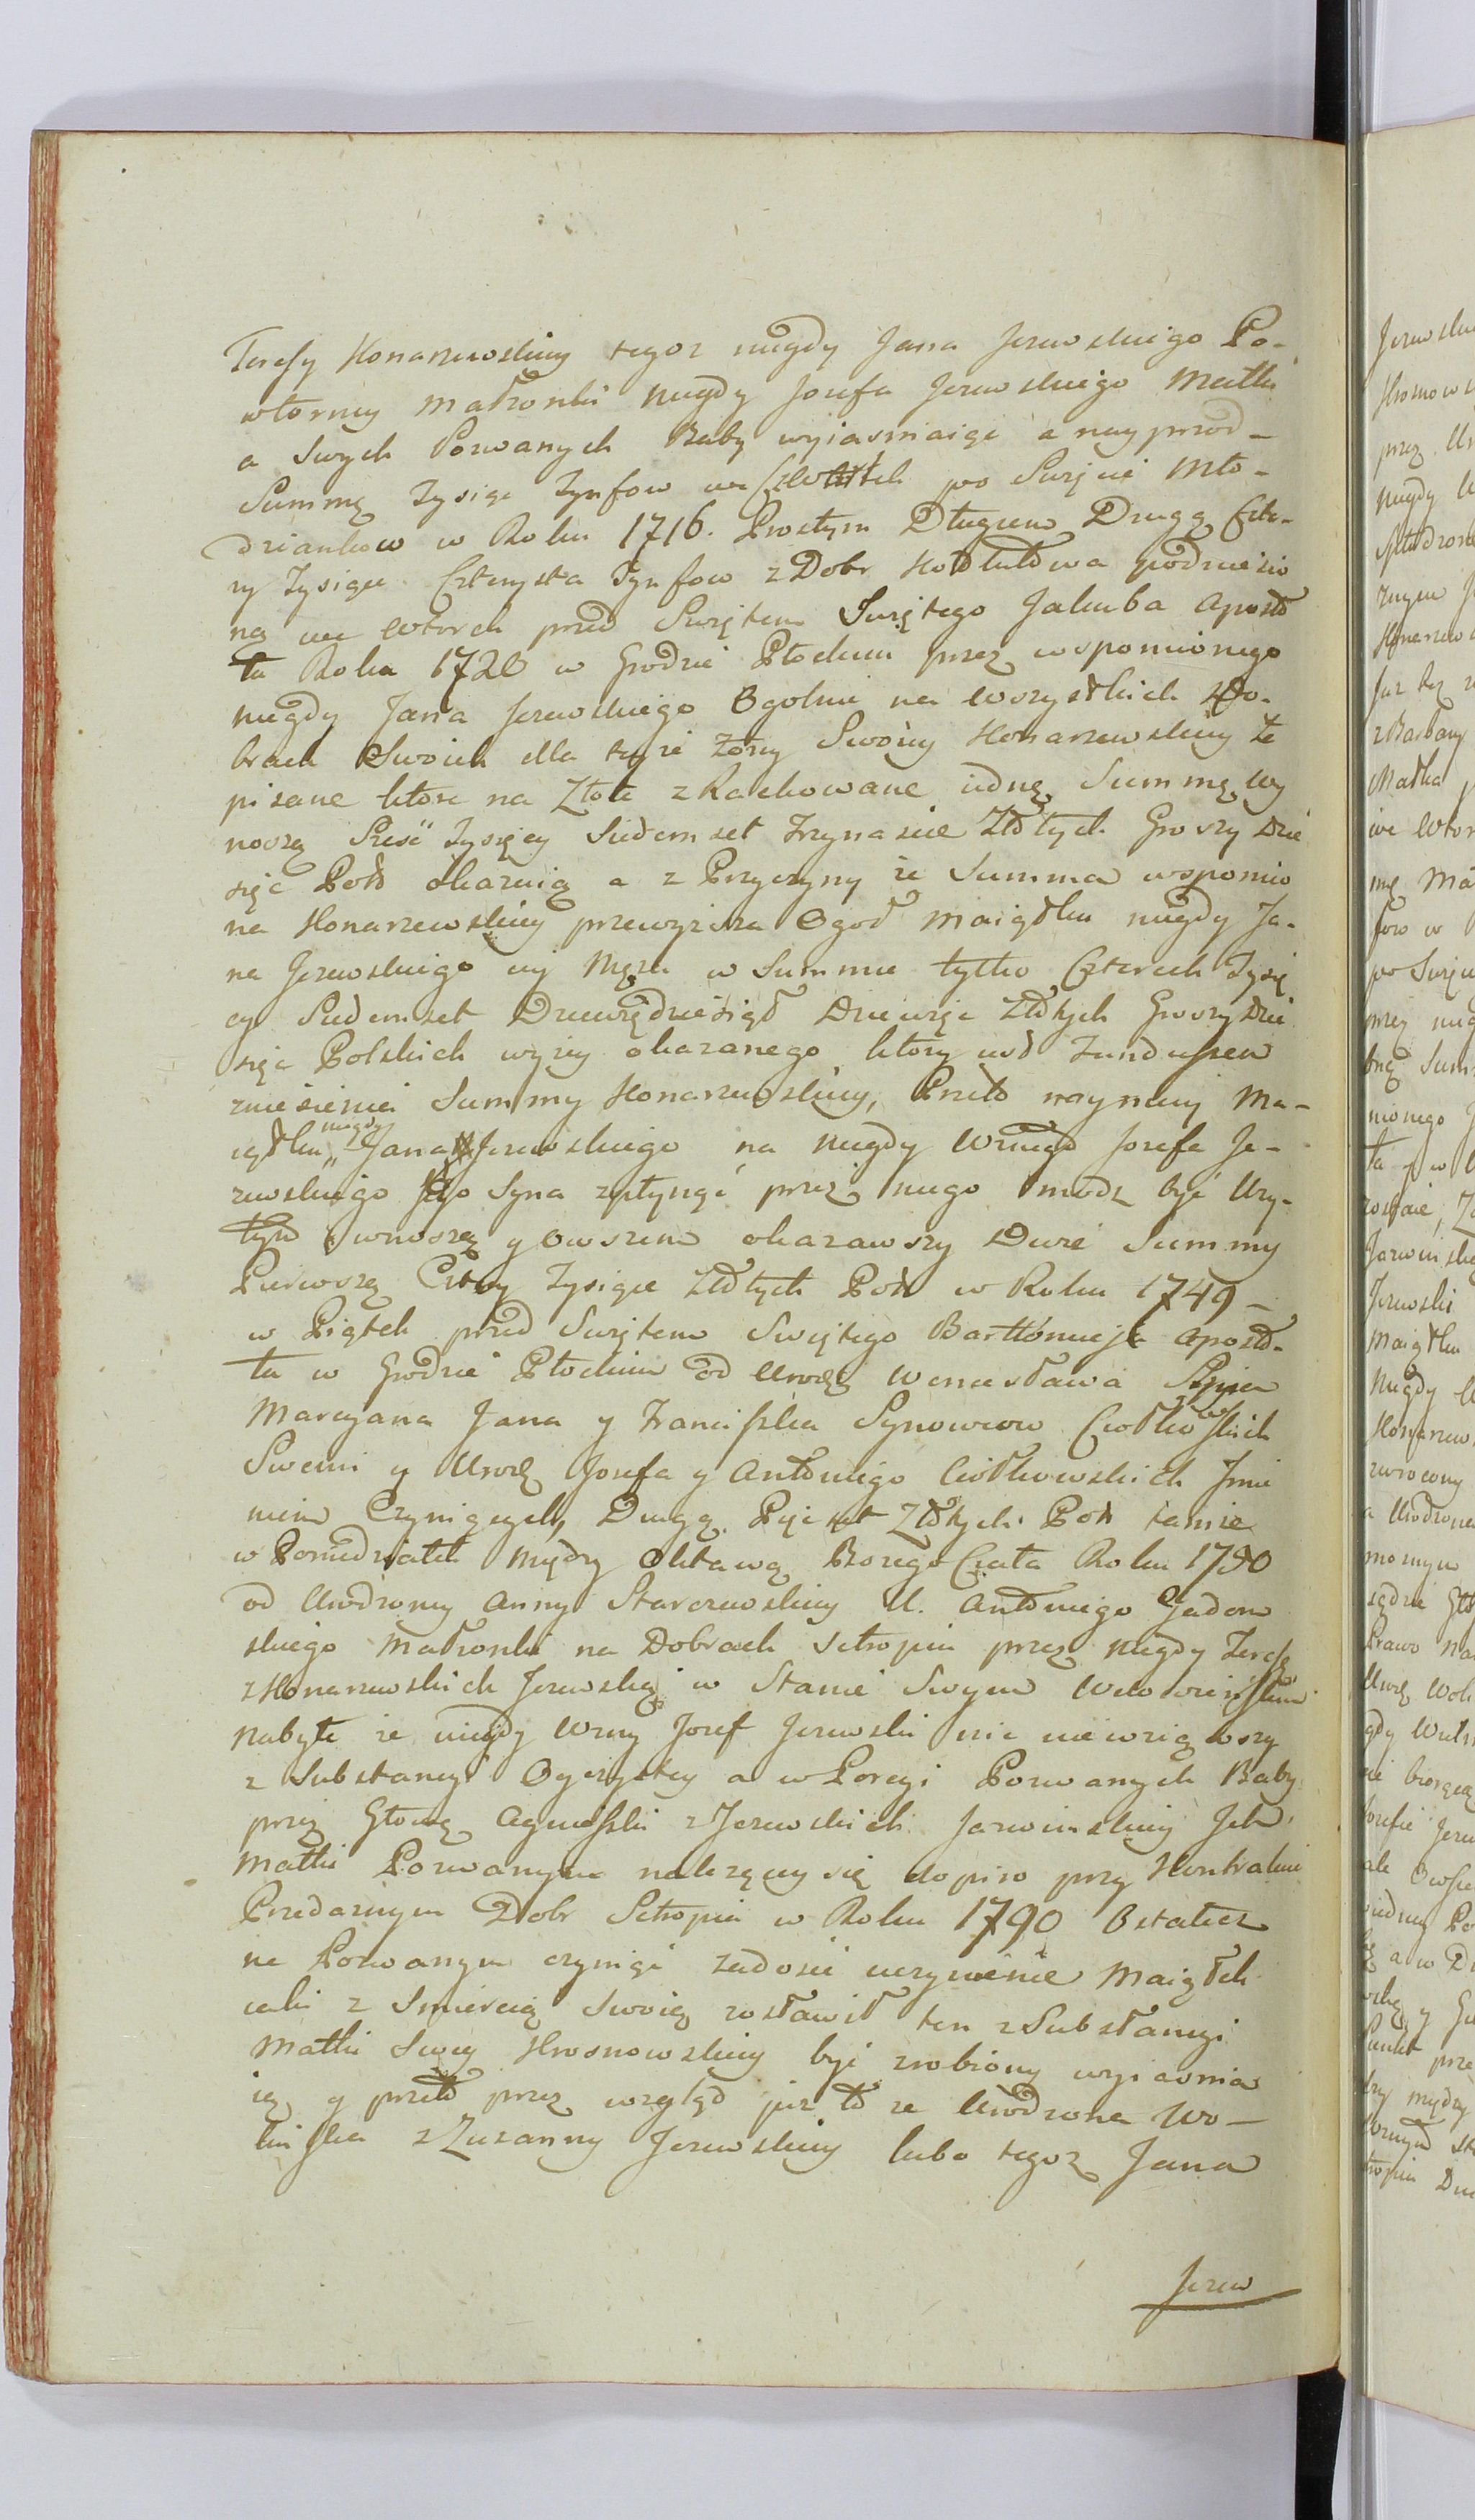 Teresy Konarzewskiey tegoz niegdy Jana Jezewskiego Po-
wtorney Małzonki niegdy Jozefa Jezewskiego Matki
a Swych Pozwanych Baby wyiasniaiąc a nayprzod-
Summę Tysiąc Tynfow we Czwartek po Swięcie Mło-
dziankow w Roku 1716. Prostym Długiem Drugą Czte-
ry Tysiące Czterysta Tynfow z Dobr podniesio
ną we Wtorek przed Swiętem Swiętego Jakuba Aposto
ła Roku 1720 w Grodzie Płockim przez wspomionego
niegdy Jana Jezewskiego Ogolnie na Wszystkich Do-
brach Swoich dla teyże Zony Swoiey Konarzewskiey Za
pisane ktore na Złote zRachowane iedną Summę wy
noszą Szesć Tysięcy Siedemset Trzynascie Złotych Groszy Dzie
sięć Pols okazuią a z Przyczyny ze Summa wspomio
na Konarzewskiey przewyzsza Ogoł Maiątku niegdy Ja-
na Jezewskiego iey Męza w Summie tylko Czterech Tysię
cy Siedemset Dziewiędziesiąt Dziewięć Złotych Groszy Dzie
sięć Polskich wyzey okazanego ktory iest Funduszem
zniesienia Summy Konarzewskiey, Przeto naymniey Ma-
iątku „niegdy Jana Jezewskiego na niegdy Wrnego Jozefa Je-
zewskiego Jego Syna zpłynąć przez niego moze być Uzy-
tym wnoszą y owszem okazawszy Dwie Summy
Pierwszą Cztery Tysiące Złotych Pols w Roku 1749-
w Piątek przed Swiętem Swiętego Bartłomieja Aposto-
ła w Grodzie Płockim od Urodz Wencesława
Marcyana Jana y Franciszka Synowcow Ciołkowskich
Swem y Urodz Jozefa y Antoniego Ciołkowskich Imie
niem Czyniących, Drugą Pięćset Złotych Pols tamze
w Poniedziałek między Oktawą Bozego Ciała Roku 1750
od Urodzoney Anny Starczewskiey U. Antoniego Gadom
skiego Małzonki na Dobrach Setropiu przez niegdy Teresę
z Konarzewskich Jezewską w Stanie Swym Wdowienskim
nabyte ze niegdy Wrny Jozef Jezewski nic niewziąwszy
z Substancyi Oyczystey a w Porcyi Pozwanych Baby
przez Głowę Agnieszki z Jezewskich Jarominskiey Ich
Matki Pozwanym nalezącey się dopiro przy Kontrakcie
Przedaznym Dobr Setropia w Roku 1790 Ostatecz
nie Pozwanym czyniąc zadosić uczynienie Maiątek
iaki z Smiercią Swoią zostawił ten z Substancyi
Matki Swey Kwosnowskiey być zrobiony wyiasnia
ią y przeto przez wzgląd iuz to ze Urodzona Wo-
linska z Zuzanny Jezewskiey lubo tegoz Jana
Jezew